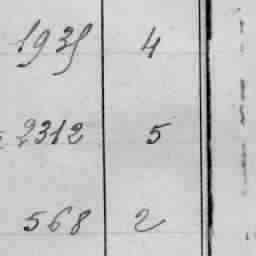 1935 4
2312 5
568 2